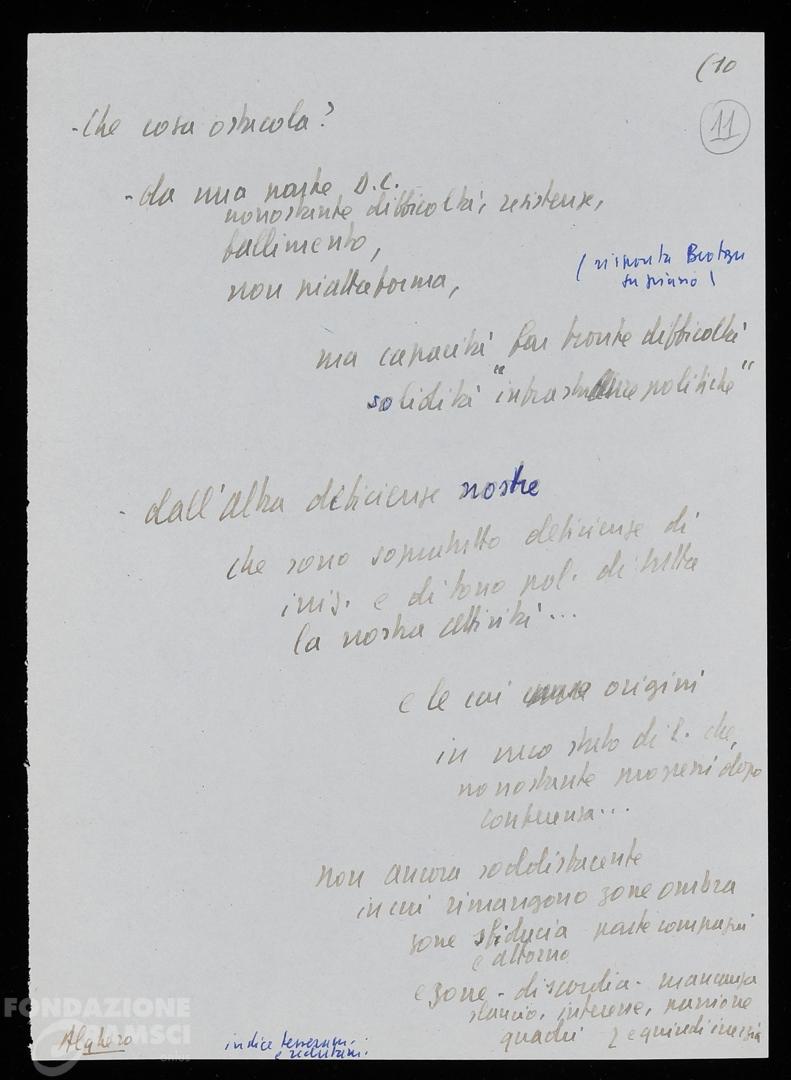 (10
11
- Che cosa ostacola?
- da una parte D.C.
nonostante difficoltà, resistenze,
fallimento,
non piattaforma,
(risposta
su piano)
ma capacità far fronte difficoltà
solidità "infrastrutture politiche"
- dall'altra deficienze nostre
che sono soprattutto deficienze di
iniz. e di tono pol. di tutta
la nostra attività...
e le cui origini
in uno stato di P. che,
nonostante progressi dopo
conferenza...
non ancora soddisfacente
in cui rimangono zone ombra
zone sfiducia parte compagni
e attorno
e zone - discordia - mancanza
slancio, interesse, passione
quadri e quindi inerzia
Alghero
indice tesseram.
e reclutam.
FONDAZIONE
GRAMSCI
onlus